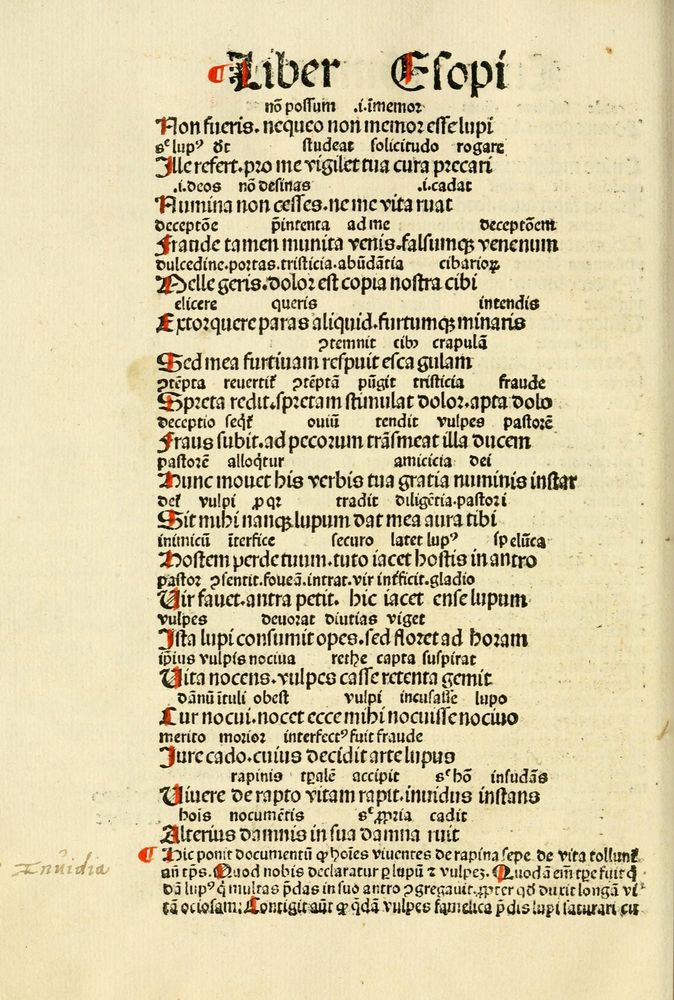 ¶Liber Esopi
nō possum .i. īmemor
Non fueris. nequeo non memor esse lupi
studeat solicitudo rogare
Ille refert. pro me vigilet tua cura precari
.i. deos nō desinas .i. cadat
Numina non cesses. ne me vita ruat
deceptōe p̄intenta ad me deceptōem
Fraude tamen munita venis. falsumqꝫ venenum
dulcedine. portas. tristicia. abūdātia cibarioꝝ
Melle geris. dolor est copia nostra cibi
elicere queris intendis
Extorquere paras aliquid. furtumqꝫ minaris
ꝯtemnit cibꝫ crapulā
Sed mea furtiuam respuit esca gulam
ꝯtēpta reuertit̉ ꝯtēptā pūgit tristicia fraude
Spreta redit. spretam stimulat dolor. apta dolo
deceptio ouiū tendit vulpes pastorē
Fraus subit. ad pecorum trāsmeat illa ducem
pastorē alloq̄tur amicicia dei
Hunc mouet his verbis tua gratia numinis instar
vulpi tradit diligētia. pastori
Sit mihi nanqꝫ lupum dat mea aura tibi
inimicū īterfice securo latet lupꝰ spelūca
Hostem perde tuum. tuto iacet hostis in antro
pastor ꝯsentit. foueā. intrat. vir inf̄ficit. gladio
Uir fauet. antra petit. hic iacet ense lupum
vulpes deuorat diuitias viget
Ista lupi consumit opes. sed floret ad horam
ip̄ius vulpis nociua rethe capta suspirat
Uita nocens. vulpes casse retenta gemit
dānū ītuli obest vulpi incusasse lupo
Cur nocui. nocet ecce mihi nocuisse nociuo
merito morior interfectꝰ fuit fraude
Jure cado. cuius decidit arte lupus
rapinis tꝑalē accipit sᶜ hō insudās
Uiuere de rapto vitam rapit. inuidus instans
hoīs nocumētis sᶜ ꝓpria cadit
Alterius damnis in sua damna ruit
¶ Hic ponit documentū ꝙ hoīes viuentes de rapina sepe de vita tollunt̉
Inuidia
an̄ tp̄s. Quod nobis declaratur ꝑ lupū ⁊ vulpeꝫ. Quodā em̄ tp̄e fuit q̄
dā lupꝰ q̄ multas p̄das in suo antro ꝯgregauit. ꝓpter qd̄ duxit longā vi
tā ociosam. Contigit aūt ꝙ q̄dā vulpes famelica p̄dis lupi saturari cu